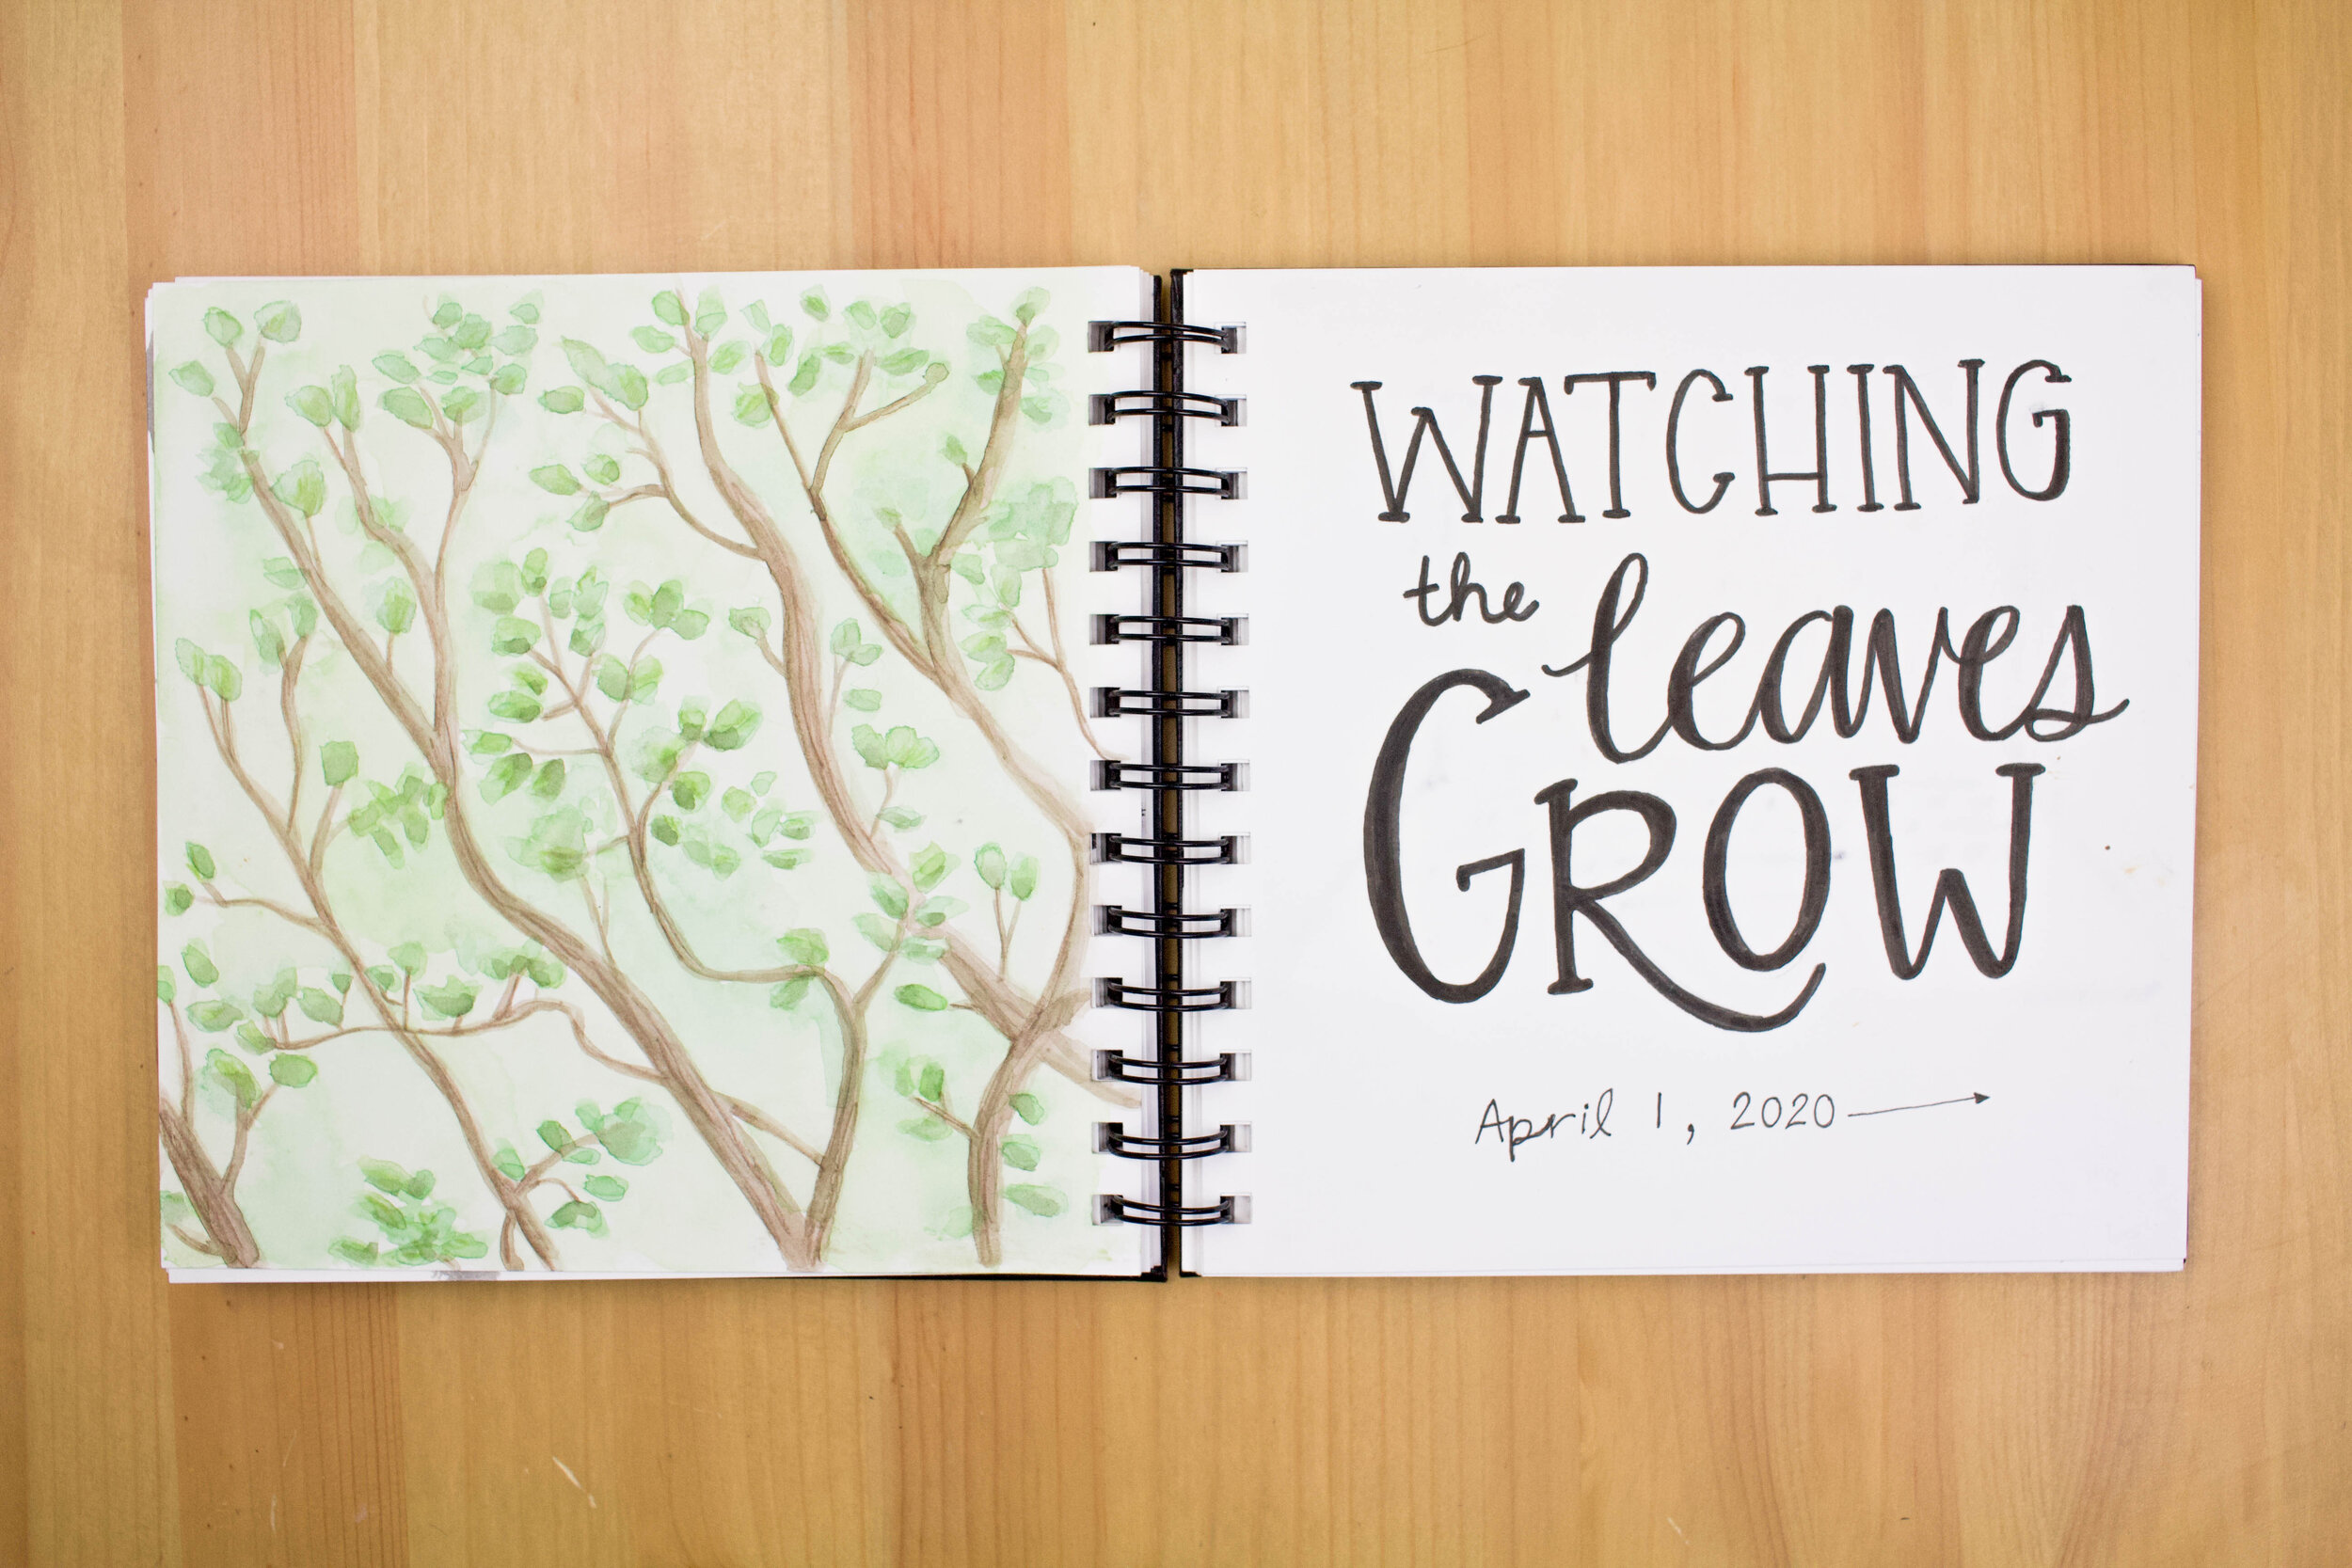 WATCHING
the leaves
GROW
April 1, 2020 →